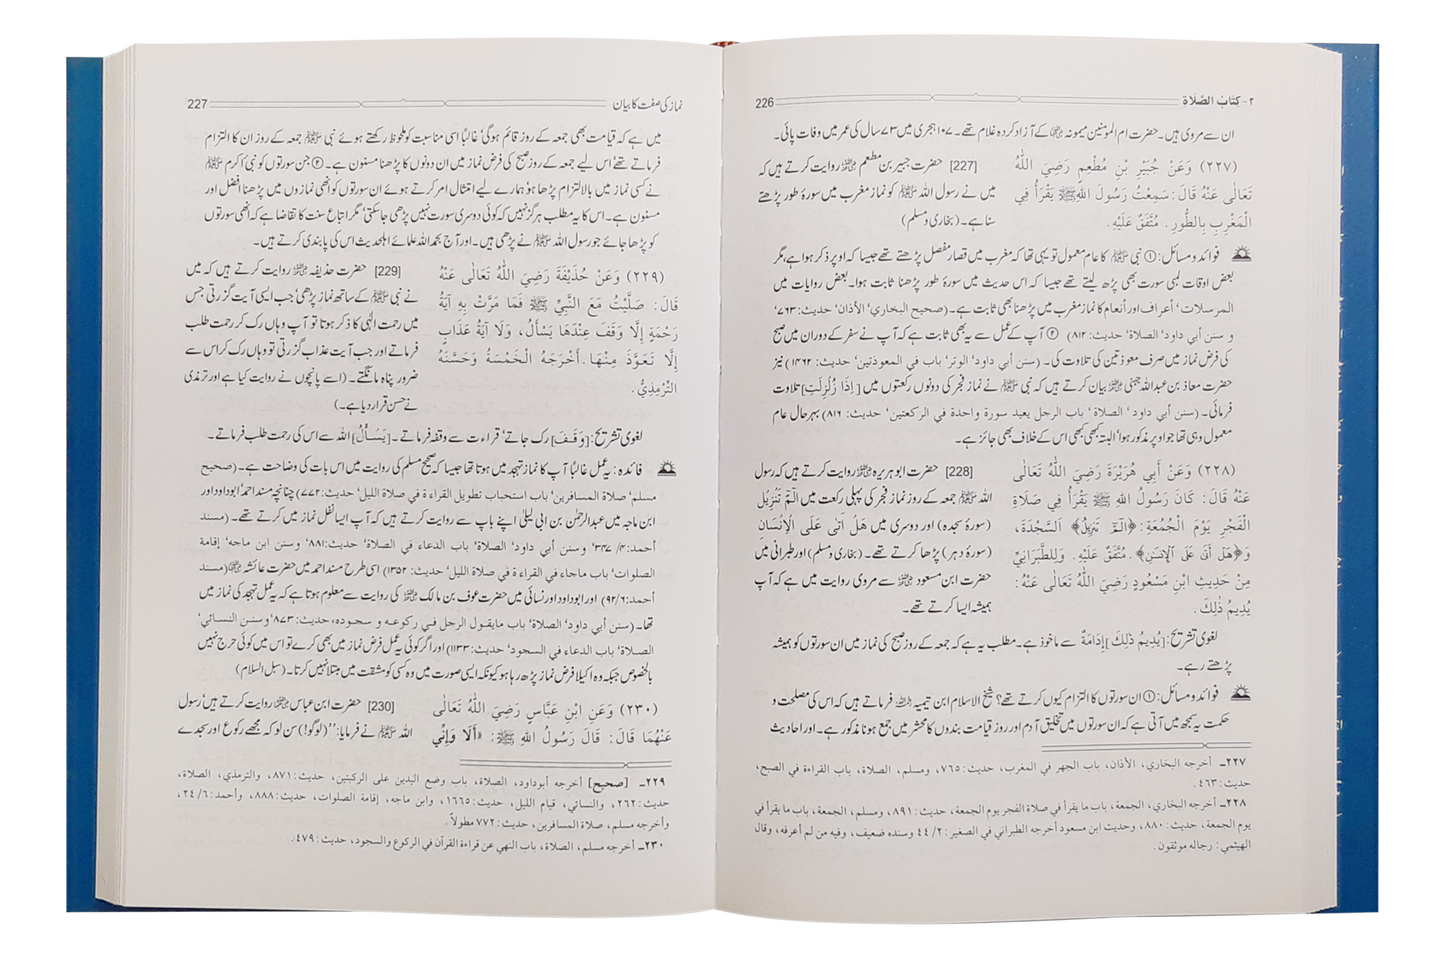 ۲- کتابُ الصَّلَاة 226
ان سے مروی ہیں۔ حضرت ام المومنین میمونہ ؓ کے آزاد کردہ غلام تھے۔ ۱۰۷ ہجری میں ۷۳ سال کی عمر میں وفات پائی۔
(٢٢٧) وَعَنْ جُبَيْرِ بْنِ مُطْعِمٍ رَضِيَ اللّٰهُ
تَعَالَى عَنْهُ قَالَ: سَمِعْتُ رَسُولَ اللهِ ﷺ يَقْرَأُ فِي
الْمَغْرِبِ بِالطُّورِ. مُتَّفَقٌ عَلَيْهِ.
[227] حضرت جبیر بن مطعم ؓ روایت کرتے ہیں کہ
میں نے رسول اللہ ﷺ کو نماز مغرب میں سورۂ طور پڑھتے
سنا ہے۔ (بخاری و مسلم)
فوائد و مسائل: ① نبی ﷺ کا عام معمول تو یہی تھا کہ مغرب میں قصار مفصل پڑھتے تھے جیسا کہ اوپر ذکر ہوا ہے، مگر
بعض اوقات لمبی سورت بھی پڑھ لیتے تھے جیسا کہ اس حدیث میں سورۂ طور پڑھنا ثابت ہوا۔ بعض روایات میں
المرسلات' أعراف اور أنعام کا نماز مغرب میں پڑھنا بھی ثابت ہے۔ (صحيح البخاري' الأذان' حديث: ۷۶۳'
و سنن أبي داود' الصلاة' حديث: ۸۱۲) ② آپ کے عمل سے یہ بھی ثابت ہے کہ آپ نے سفر کے دوران میں صبح
کی فرض نماز میں صرف معوذتین کی تلاوت کی۔ (سنن أبي داود' الوتر' باب في المعوذتين' حديث: ۱۴۶۲) نیز
حضرت معاذ بن عبداللہ جہنی ؓ بیان کرتے ہیں کہ نبی ﷺ نے نماز فجر کی دونوں رکعتوں میں [إِذَا زُلْزِلَتِ] تلاوت
فرمائی۔ (سنن أبي داود' الصلاة' باب الرجل يعيد سورة واحدة في الركعتين' حديث: ۸۱۶) بہرحال عام
معمول وہی تھا جو اوپر مذکور ہوا' البتہ کبھی کبھی اس کے خلاف بھی جائز ہے۔
(٢٢٨) وَعَنْ أَبِي هُرَيْرَةَ رَضِيَ اللّٰهُ تَعَالَى
عَنْهُ قَالَ: كَانَ رَسُولُ اللهِ ﷺ يَقْرَأُ فِي صَلَاةِ
الْفَجْرِ يَوْمَ الْجُمُعَةِ: ﴿الٓمٓ تَنزِيلُ﴾ اَلسَّجْدَةَ،
وَ﴿هَلْ أَتَىٰ عَلَى الْإِنسَٰنِ﴾. مُتَّفَقٌ عَلَيْهِ. وَلِلطَّبَرَانِيِّ
مِنْ حَدِيثِ ابْنِ مَسْعُودٍ رَضِيَ اللّٰهُ تَعَالَى عَنْهُ:
يُدِيمُ ذٰلِكَ.
[228] حضرت ابوہریرہ ؓ روایت کرتے ہیں کہ رسول
اللہ ﷺ جمعہ کے روز نماز فجر کی پہلی رکعت میں الٓمّٓ تَنْزِيْل
(سورۂ سجدہ) اور دوسری میں هَلْ اَتٰى عَلَى الْاِنْسَانِ
(سورۂ دہر) پڑھا کرتے تھے۔ (بخاری و مسلم) اور طبرانی میں
حضرت ابن مسعود ؓ سے مروی روایت میں ہے کہ آپ
ہمیشہ ایسا کرتے تھے۔
لغوی تشریح: [يُدِيمُ ذٰلِكَ] إِدَامَةٌ سے ماخوذ ہے۔ مطلب یہ ہے کہ جمعہ کے روز صبح کی نماز میں ان سورتوں کو ہمیشہ
پڑھتے رہے۔
فوائد و مسائل: ① ان سورتوں کا التزام کیوں کرتے تھے؟ شیخ الاسلام ابن تیمیہ ؒ فرماتے ہیں کہ اس کی مصلحت و
حکمت یہ سمجھ میں آتی ہے کہ ان سورتوں میں تخلیق آدم اور روز قیامت بندوں کا محشر میں جمع ہونا مذکور ہے۔ اور احادیث
٢٢٧ـ أخرجه البخاري، الأذان، باب الجهر في المغرب، حديث: ٧٦٥، ومسلم، الصلاة، باب القراءة في الصبح،
حديث: ٤٦٣.
٢٢٨ـ أخرجه البخاري، الجمعة، باب ما يقرأ في صلاة الفجر يوم الجمعة، حديث: ٨٩١، ومسلم، الجمعة، باب ما يقرأ في
يوم الجمعة، حديث: ٨٨٠، وحديث ابن مسعود أخرجه الطبراني في الصغير: ٢/ ٤٤ وسنده ضعيف، وفيه من لم أعرفه، وقال
الهيثمي: رجاله موثقون.
نماز کی صفت کا بیان 227
میں ہے کہ قیامت بھی جمعہ کے روز قائم ہوگی' غالباً اسی مناسبت کو ملحوظ رکھتے ہوئے نبی ﷺ جمعہ کے روز ان کا التزام
فرماتے تھے' اس لیے جمعہ کے روز صبح کی فرض نماز میں ان دونوں کا پڑھنا مسنون ہے۔ ② جن سورتوں کو نبی اکرم ﷺ
نے کسی نماز میں بالالتزام پڑھا ہو' ہمارے لیے امتثال امر کرتے ہوئے ان سورتوں کو انھی نمازوں میں پڑھنا افضل اور
مسنون ہے۔ اس کا یہ مطلب ہرگز نہیں کہ کوئی دوسری سورت نہیں پڑھی جاسکتی' مگر اتباع سنت کا تقاضا ہے کہ انھی سورتوں
کو پڑھا جائے جو رسول اللہ ﷺ نے پڑھی ہیں۔ اور آج بحمداللہ علمائے اہلحدیث اس کی پابندی کرتے ہیں۔
(٢٢٩) وَعَنْ حُذَيْفَةَ رَضِيَ اللّٰهُ تَعَالَى عَنْهُ
قَالَ: صَلَّيْتُ مَعَ النَّبِيِّ ﷺ فَمَا مَرَّتْ بِهِ آيَةُ
رَحْمَةٍ إِلَّا وَقَفَ عِنْدَهَا يَسْأَلُ، وَلَا آيَةُ عَذَابٍ
إِلَّا تَعَوَّذَ مِنْهَا. أَخْرَجَهُ الْخَمْسَةُ وَحَسَّنَهُ
التِّرْمِذِيُّ.
[229] حضرت حذیفہ ؓ روایت کرتے ہیں کہ میں
نے نبی ﷺ کے ساتھ نماز پڑھی' جب ایسی آیت گزرتی جس
میں رحمت الٰہی کا ذکر ہوتا تو آپ وہاں رک کر رحمت طلب
فرماتے اور جب آیت عذاب گزرتی تو وہاں رک کر اس سے
ضرور پناہ مانگتے۔ (اسے پانچوں نے روایت کیا ہے اور ترمذی
نے حسن قرار دیا ہے۔)
لغوی تشریح: [وَقَفَ] رک جاتے' قراءت سے وقفہ فرماتے۔ [يَسْأَلُ] اللہ سے اس کی رحمت طلب فرماتے۔
فائدہ: یہ عمل غالباً آپ کا نماز تہجد میں ہوتا تھا جیسا کہ صحیح مسلم کی روایت میں اس بات کی وضاحت ہے۔ (صحيح
مسلم' صلاة المسافرين' باب استحباب تطويل القراءة في صلاة الليل' حديث: ۷۷۲) چنانچہ مسند احمد' ابوداود اور
ابن ماجہ میں عبدالرحمٰن بن ابی لیلیٰ اپنے باپ سے روایت کرتے ہیں کہ آپ ایسا نفل نماز میں کرتے تھے۔ (مسند
أحمد: ۴/ ۳۴۷' وسنن أبي داود' الصلاة' باب الدعاء في الصلاة' حديث: ۸۸۱' وسنن ابن ماجه' إقامة
الصلوات' باب ماجاء في القراءة في صلاة الليل' حديث: ۱۳۵۲) اسی طرح مسند احمد میں حضرت عائشہ ؓ (مسند
أحمد: ۶/۹۲) اور ابوداود اور نسائی میں حضرت عوف بن مالک ؓ کی روایت سے معلوم ہوتا ہے کہ یہ عمل تہجد کی نماز میں
تھا۔ (سنن أبي داود' الصلاة' باب مايقول الرجل في ركوعه و سجوده، حديث: ۸۷۳' وسنن النسائي'
الصلاة' باب الدعاء في السجود' حديث: ۱۱۳۳) اور اگر کوئی یہ عمل فرض نماز میں بھی کرے تو اس میں کوئی حرج نہیں
بالخصوص جبکہ وہ اکیلا فرض نماز پڑھ رہا ہو کیونکہ ایسی صورت میں وہ کسی کو مشقت میں مبتلا نہیں کرتا۔ (سبل السلام)
(٢٣٠) وَعَنِ ابْنِ عَبَّاسٍ رَضِيَ اللّٰهُ تَعَالَى
عَنْهُمَا قَالَ: قَالَ رَسُولُ اللهِ ﷺ: «أَلَا وَإِنِّي
[230] حضرت ابن عباس ؓ روایت کرتے ہیں' رسول
اللہ ﷺ نے فرمایا: ''(لوگو!) سن لو کہ مجھے رکوع اور سجدے
٢٢٩ـ [صحيح] أخرجه أبوداود، الصلاة، باب وضع اليدين على الركبتين، حديث: ٨٧١، والترمذي، الصلاة،
حديث: ٢٦٢، والنسائي، قيام الليل، حديث: ١٦٦٥، وابن ماجه، إقامة الصلوات، حديث: ٨٨٨، وأحمد: ٦/ ٢٤،
وأخرجه مسلم، صلاة المسافرين، حديث: ٧٧٢ مطولاً.
٢٣٠ـ أخرجه مسلم، الصلاة، باب النهي عن قراءة القرآن في الركوع والسجود، حديث: ٤٧٩.